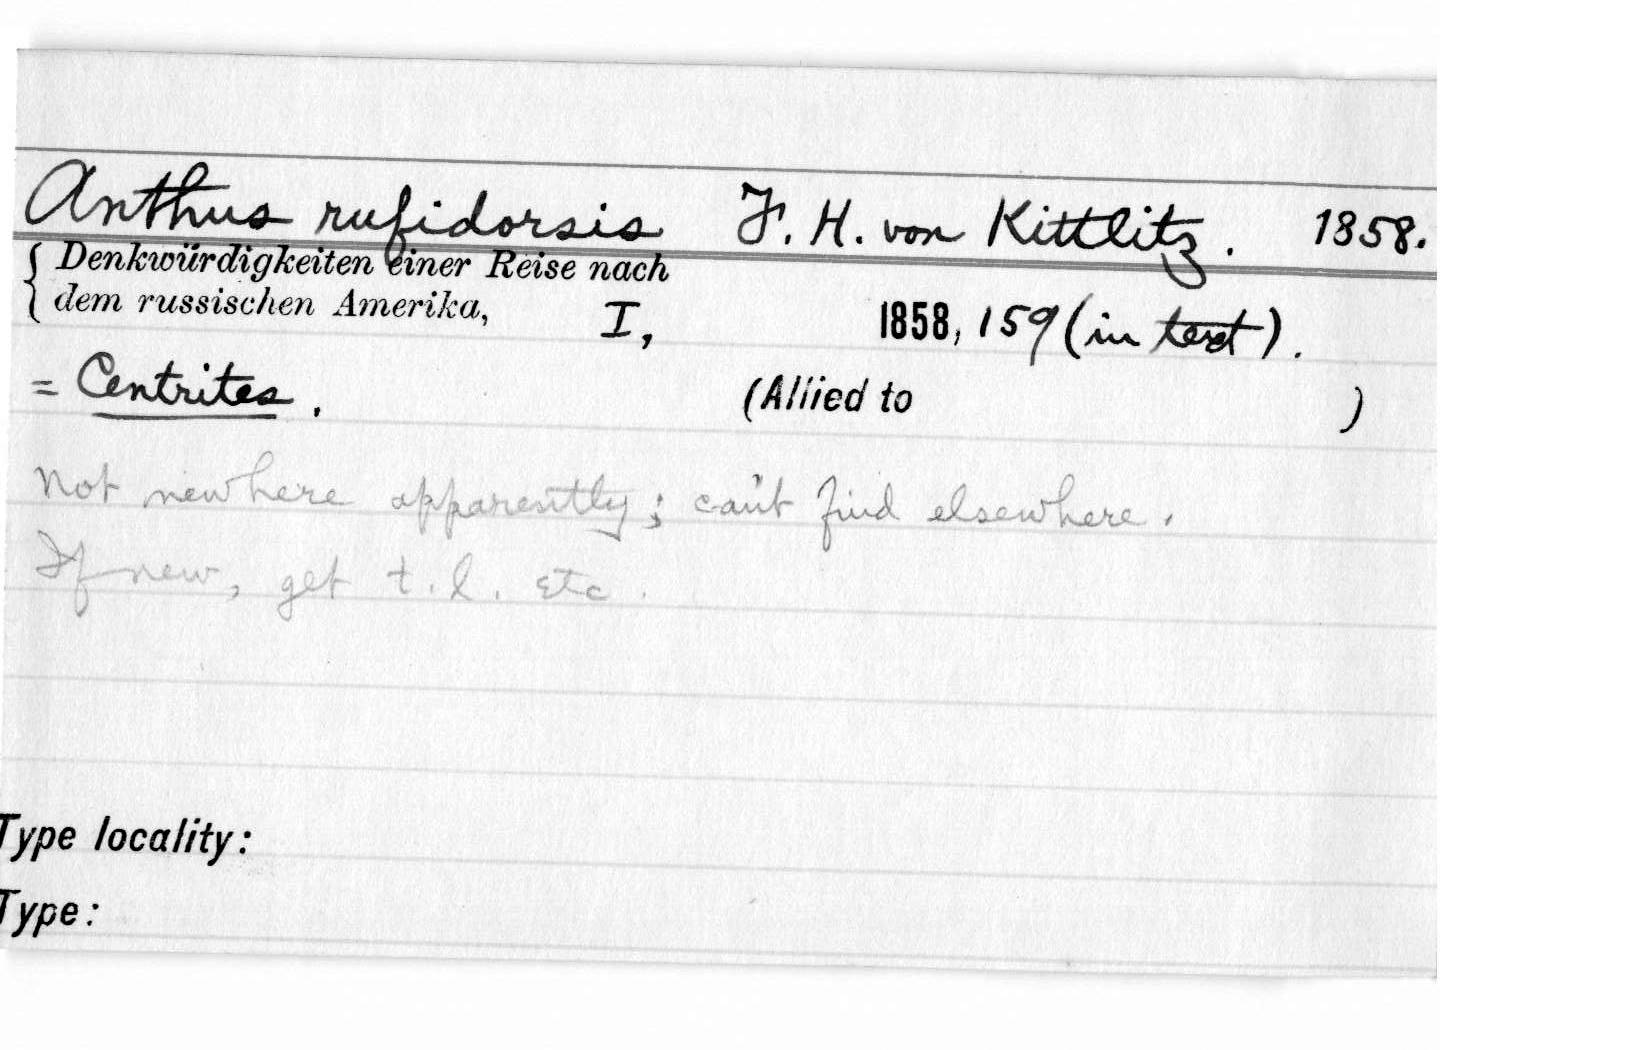 Anthus rufidorsis F. H. von Kittlitz. 1858.
Denkwürdigkeiten einer Reise nach
dem russischen Amerika, I, 1858, 159 (in text).
= Centrites. (Allied to )
Not new here apparently; can't find elsewhere.
If new, get t.l. etc.
Type locality:
Type: